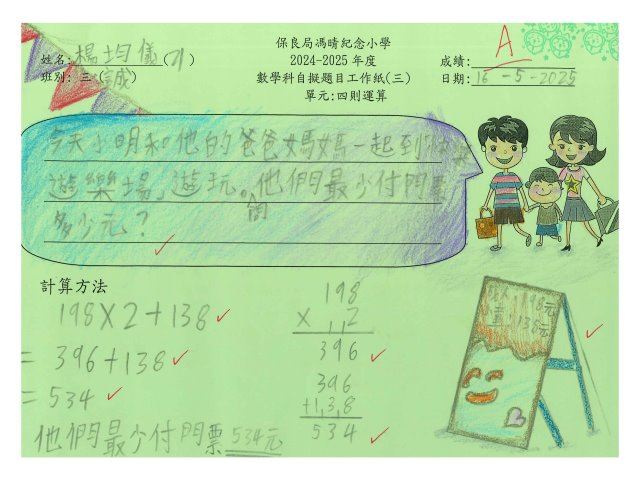 保良局馮晴紀念小學
2024-2025 年度
數學科自擬題目工作紙(三)
單元:四則運算
姓名: 楊均儀 (21)
班別: 三 (誠)
成績: A
日期: 16-5-2025
今天小明和他的爸爸媽媽一起到「
遊樂場」遊玩。問他們最少付門票
多少元?
計算方法
198×2+138
= 396+138
= 534
他們最少付門票534元
198
× 2
396
396
+138
534
198元
138元